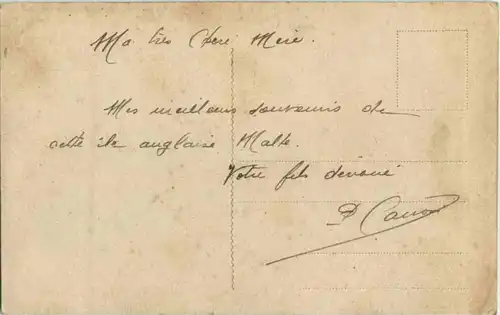 Ma très Chère Mère.
Mes meilleurs souvenirs de
cette île anglaise Malte.
Votre fils dévoué
P